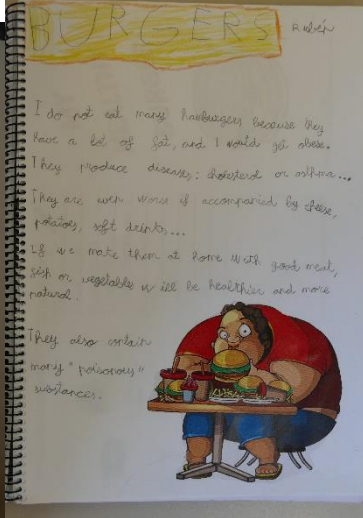 BURGERS
Rubén
I do not eat many hamburgers because they
have a lot of fat, and I would get obese.
They produce diseases: cholesterol or asthma...
They are even worse if accompanied by cheese,
potatoes, soft drinks,...
If we make them at home with good meat,
fish or vegetable will be healthier and more
natural.
They also contain
many "poisonous"
substances.